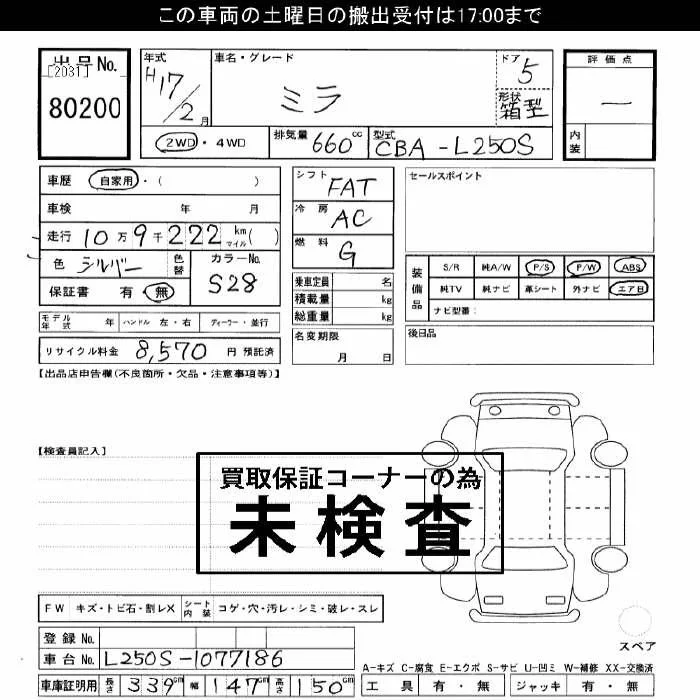 この車両の土曜日の搬出受付は17:00まで
出品No.
[2031]
80200
年式
H17/2月
車名・グレード
ミラ
ドア
5
形状
箱型
評価点
一
内装
2WD・4WD
排気量 660cc
型式 CBA-L250S
車歴 自家用・( )
車検 年 月
走行 10万9千222km マイル( )
色 シルバー 色替 カラーNo. S28
保証書 有・無
モデル年式 年 ハンドル 左・右 ディーラー・並行
リサイクル料金 8,570円 預託済
シフト FAT
冷房 AC
燃料 G
乗車定員 名
積載量 kg
総重量 kg
名変期限
月 日
セールスポイント
装備品
S/R 純A/W P/S P/W ABS
純TV 純ナビ 革シート 外ナビ エアB
ナビ型番:
後日品
【出品店申告欄(不良箇所・欠品・注意事項等)】
【検査員記入】
買取保証コーナーの為
未検査
FW キズ・トビ石・割レX シート内装 コゲ・穴・汚レ・シミ・破レ・スレ
登録No.
車台No. L250S-1077186
車庫証明用 長さ 339cm 幅 147cm 高さ 150cm
スペア
A-キズ C-腐食 E-エクボ S-サビ U-凹ミ W-補修 XX-交換済
工具 有・無 ジャッキ 有・無